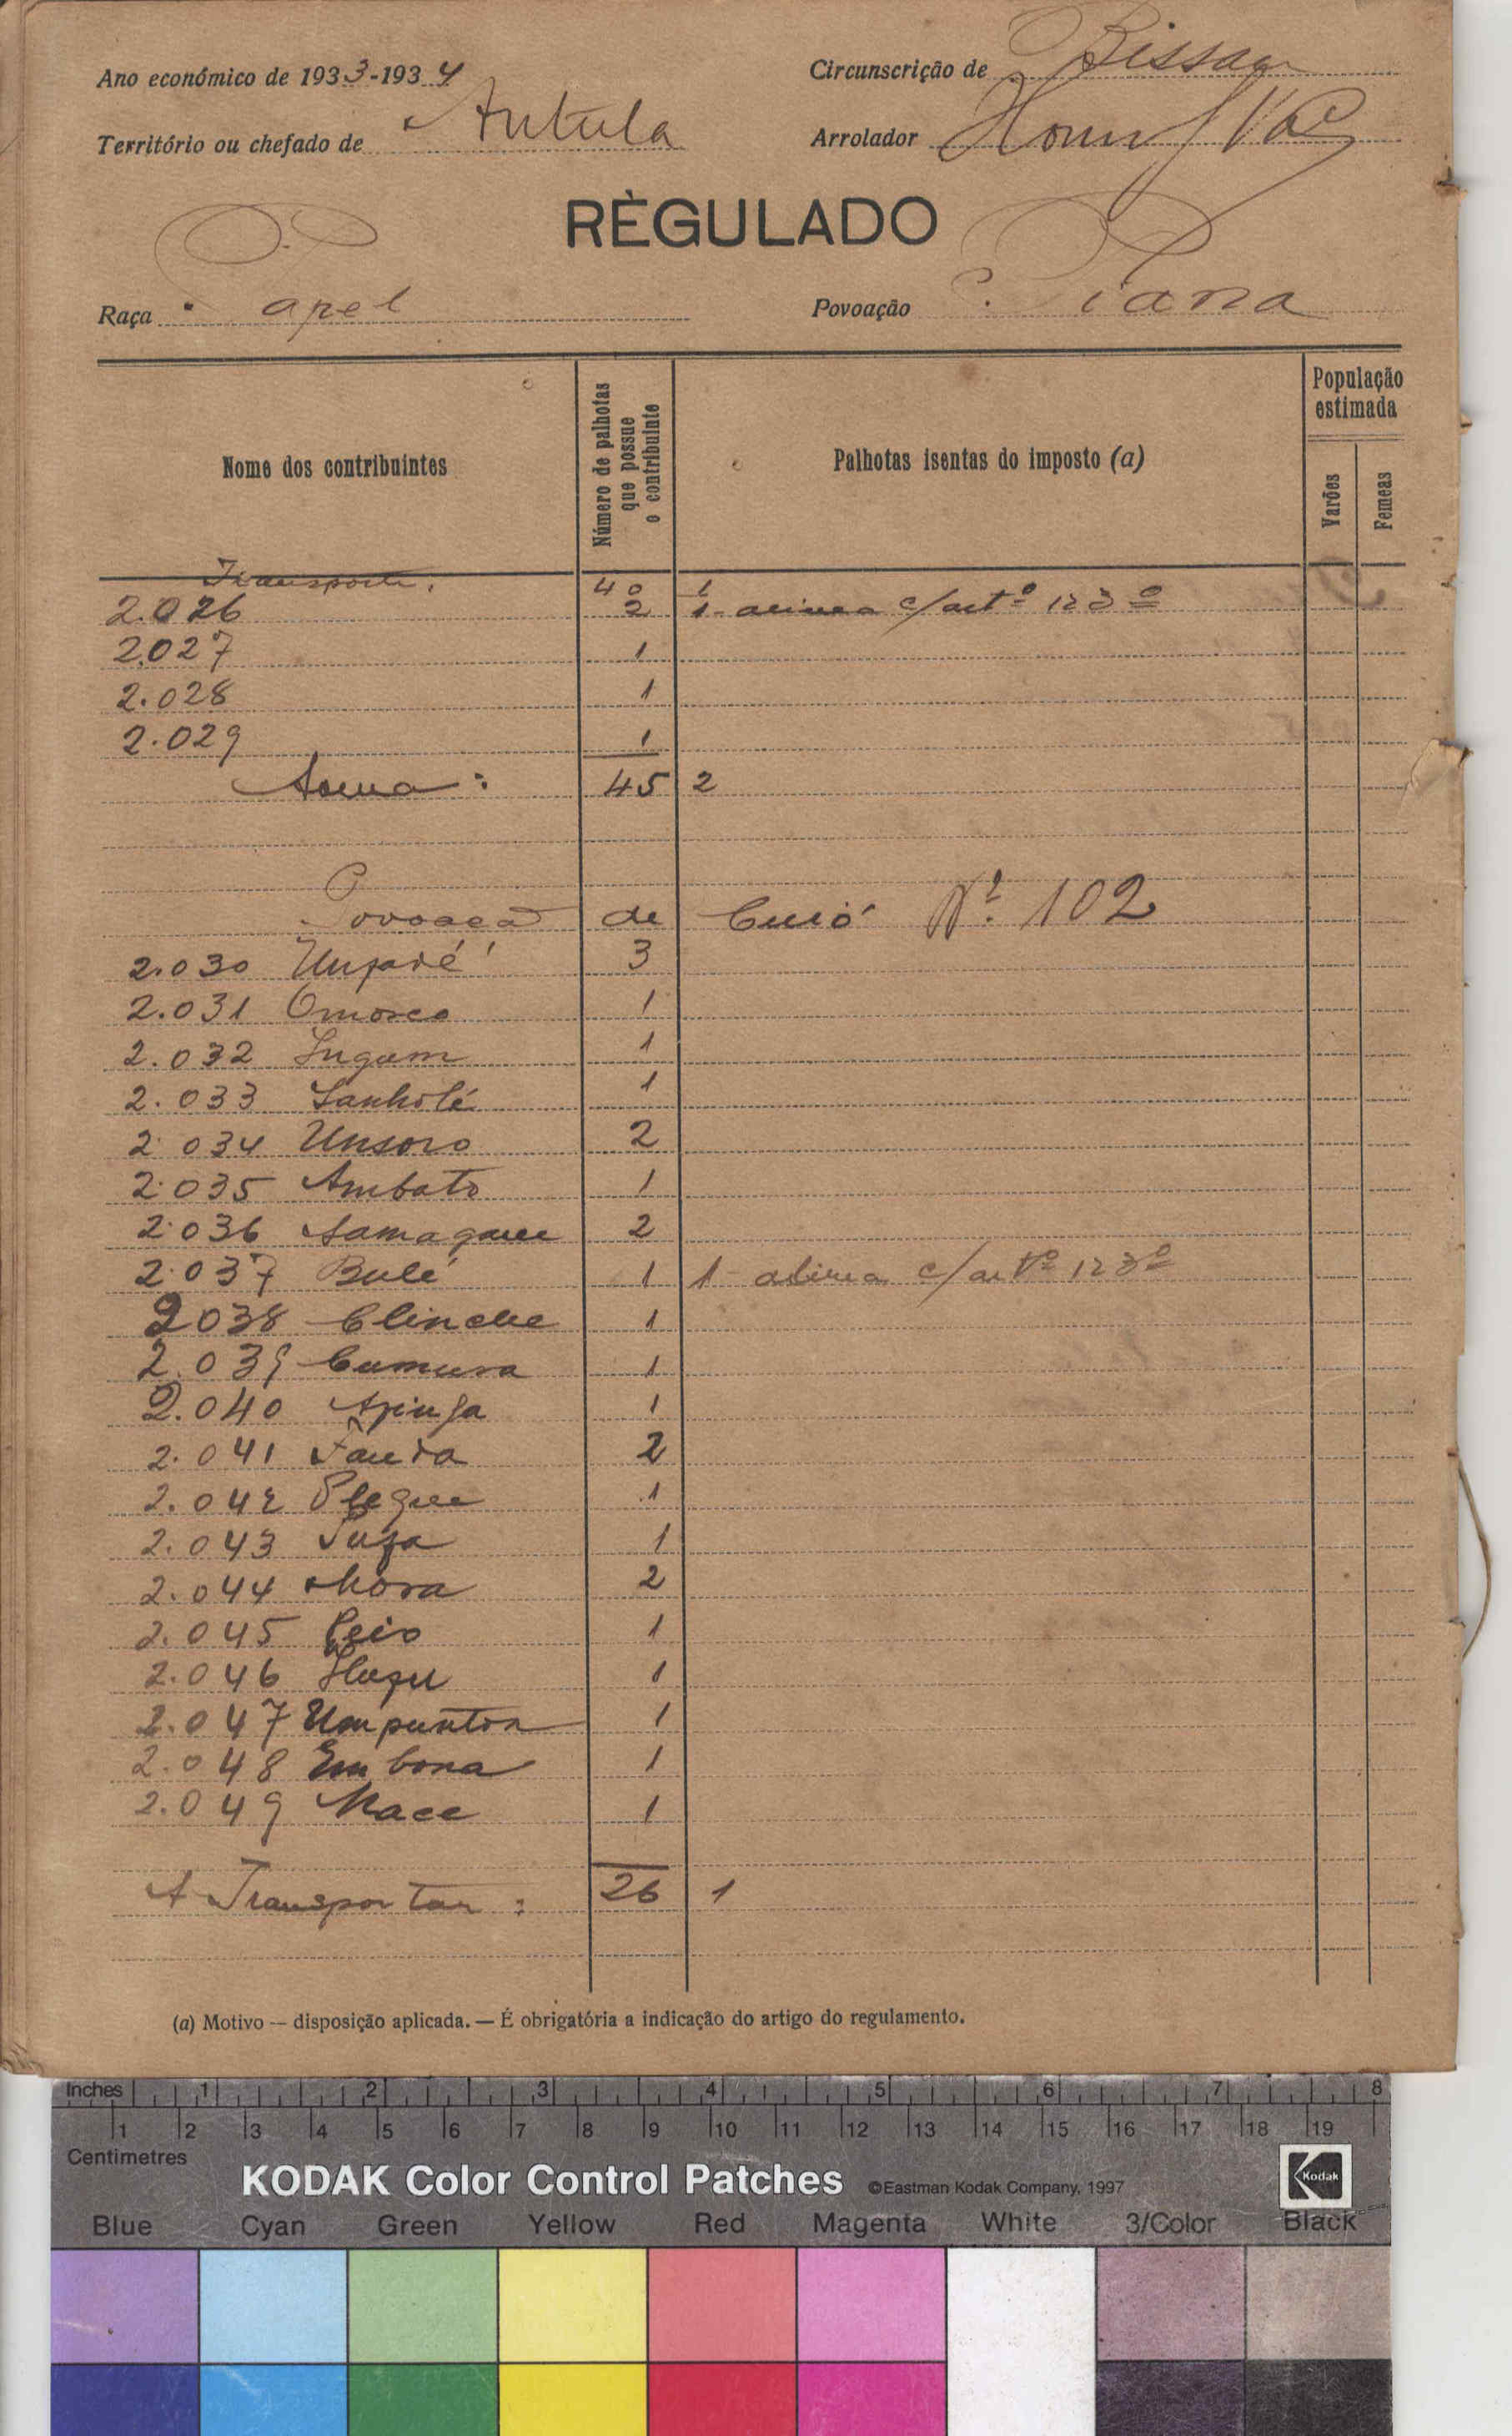 Ano económico de 1933-1934
Circunscrição de Bissau
Território ou chefado de Antula
Arrolador
RÈGULADO
Raça Papel
Povoação Piana
Nome dos contribuintes
Número de palhotas que possue o contribuinte
Palhotas isentas do imposto (a)
População estimada
Varões
Femeas
Transporte. 40 1
2.026 2 1- alinea c/artº 123º
2.027 1
2.028 1
2.029 1
Soma: 45 2
Povoação de Curó Nº 102
2.030 3
2.031 1
2.032 Ingum 1
2.033 Sanholé 1
2.034 Unsoro 2
2.035 Ambato 1
2.036 2
2.037 Bulé 1 1- alinea c/artº 123º
2038 Clinche 1
2.039 Cumura 1
2.040 1
2.041 2
2.042 1
2.043 1
2.044 2
2.045 1
2.046 1
2.047 1
2.048 Embona 1
2.049 1
A Transportar: 26 1
(a) Motivo — disposição aplicada. — É obrigatória a indicação do artigo do regulamento.
Inches 1 2 3 4 5 6 7 8
1 2 3 4 5 6 7 8 9 10 11 12 13 14 15 16 17 18 19
Centimetres
KODAK Color Control Patches ©Eastman Kodak Company, 1997 Kodak
Blue Cyan Green Yellow Red Magenta White 3/Color Black